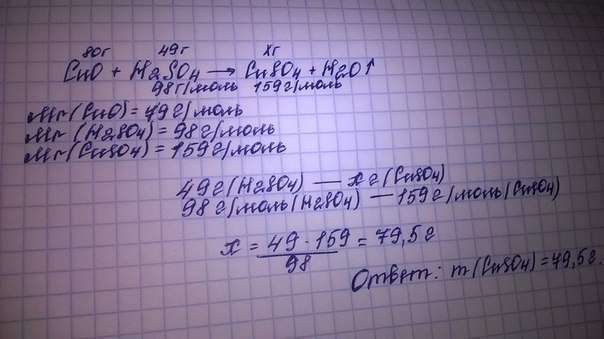 80г 49г xг
CuO + H2SO4 → CuSO4 + H2O↑
98г/моль 159г/моль
Mr(CuO) = 79г/моль
Mr(H2SO4) = 98г/моль
Mr(CuSO4) = 159г/моль
49г(H2SO4) — xг(CuSO4)
98г/моль(H2SO4) — 159г/моль(CuSO4)
x = 49·159 = 79,5г
98
Ответ: m(CuSO4) = 79,5г.